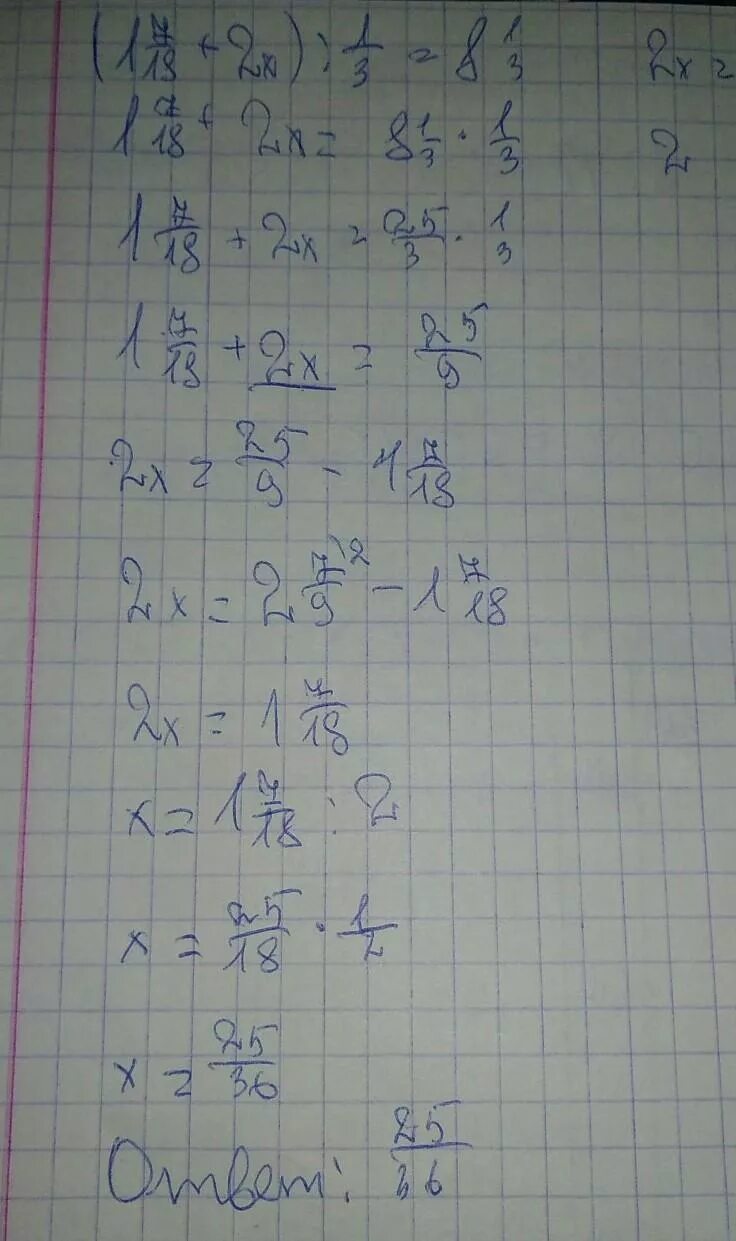 (1 7/18 + 2x) : 1/3 = 8 1/3
1 7/18 + 2x = 8 1/3 · 1/3
1 7/18 + 2x = 25/3 · 1/3
1 7/18 + 2x = 25/9
2x = 25/9 - 1 7/18
2x = 2 7/9 \2 - 1 7/18
2x = 1 7/18
x = 1 7/18 : 2
x = 25/18 · 1/2
x = 25/36
Ответ: 25/36
2x =
2